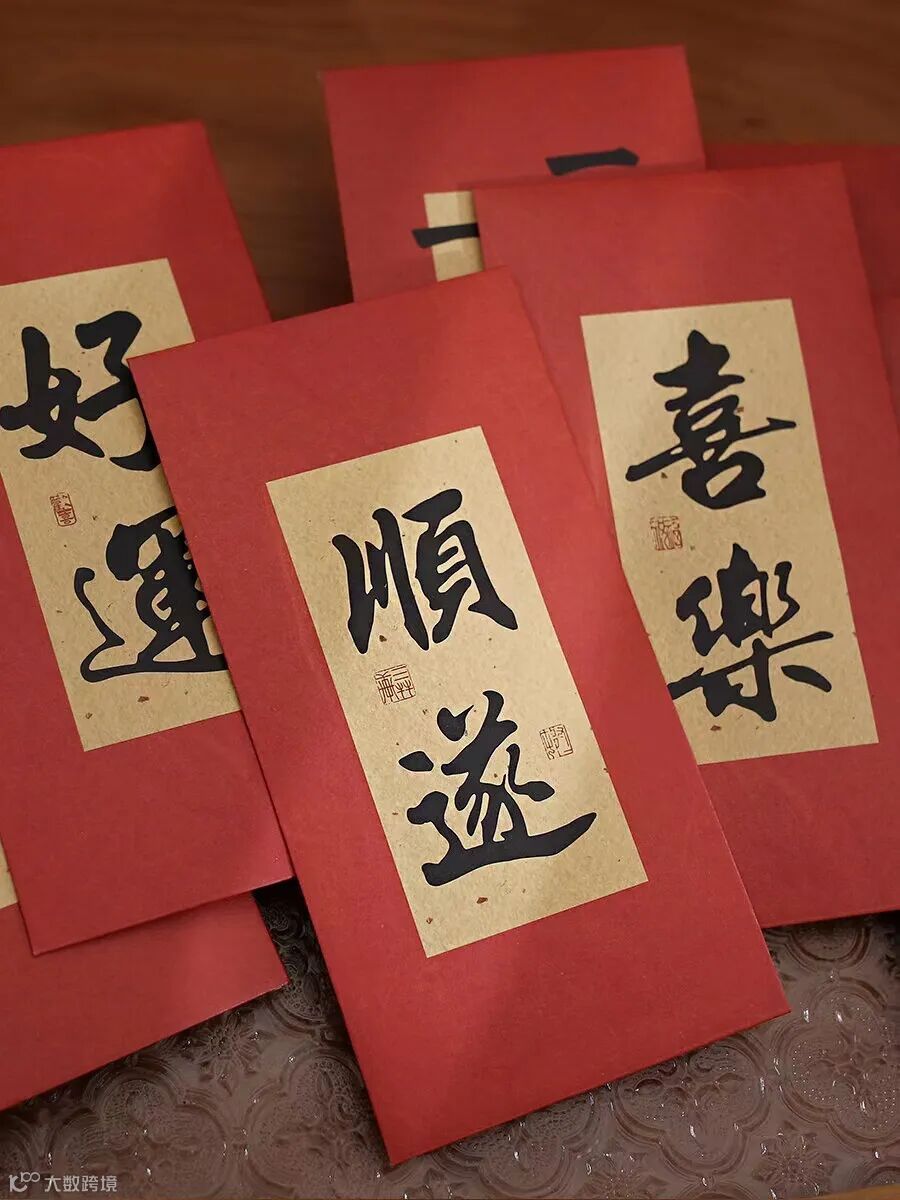 好
運
順
遂
喜
樂
大数跨境